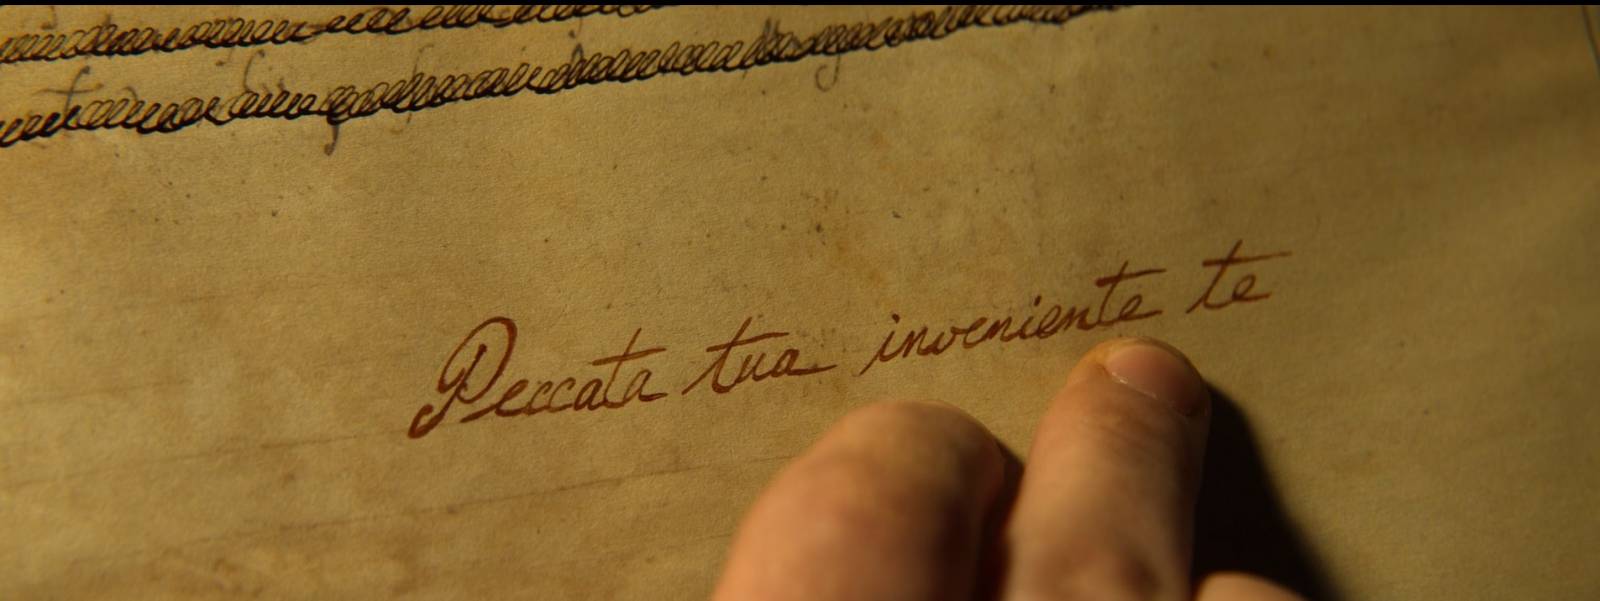 Peccata tua inveniente te